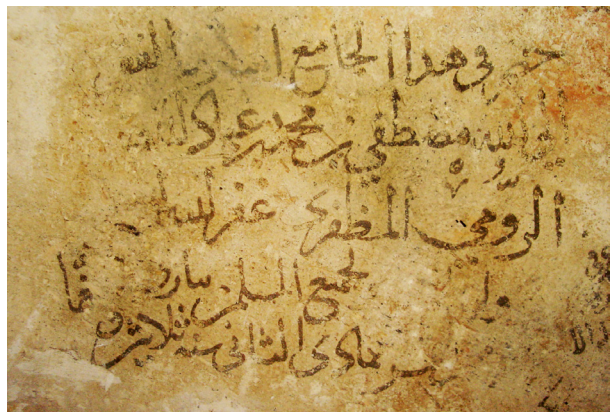 حضر في هذا الجامع المبارك الفقير
الى الله مصطفى بن محمد بن عباد الله
الرومي المظفري غفر الله له
ولجميع المسلمين بتاريخ
شهر جمادى الثاني سنة ثلاثين